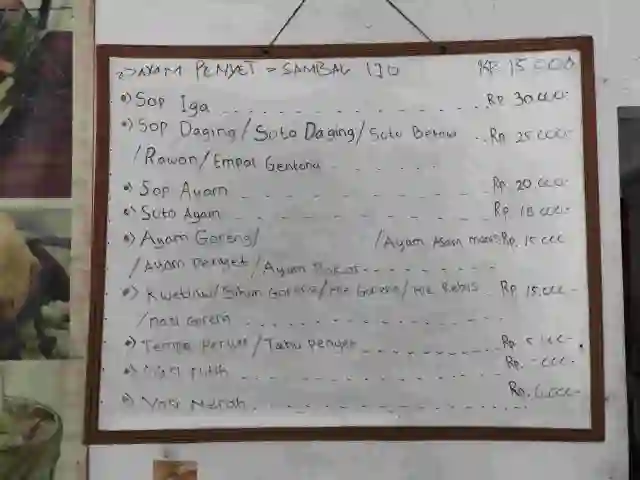 AYAM PENYET SAMBAL IJO Rp 15.000
Sop Iga Rp 30.000-
Sop Daging/Soto Daging/Soto Betawi Rp 25.000-
/Rawon/Empal Gentong
Sop Ayam Rp 20.000-
Soto Ayam Rp 18.000-
Ayam Goreng/ /Ayam Asam manis Rp. 15.000
/Ayam Penyet/Ayam Bakar
Kwetiau/Bihun Goreng/Mie Goreng/Mie Rebus Rp 15.000-
/nasi Goreng
Tempe Penyet/Tahu Penyet Rp.
Nasi Putih Rp.
Nasi Merah Rp. 6.000-